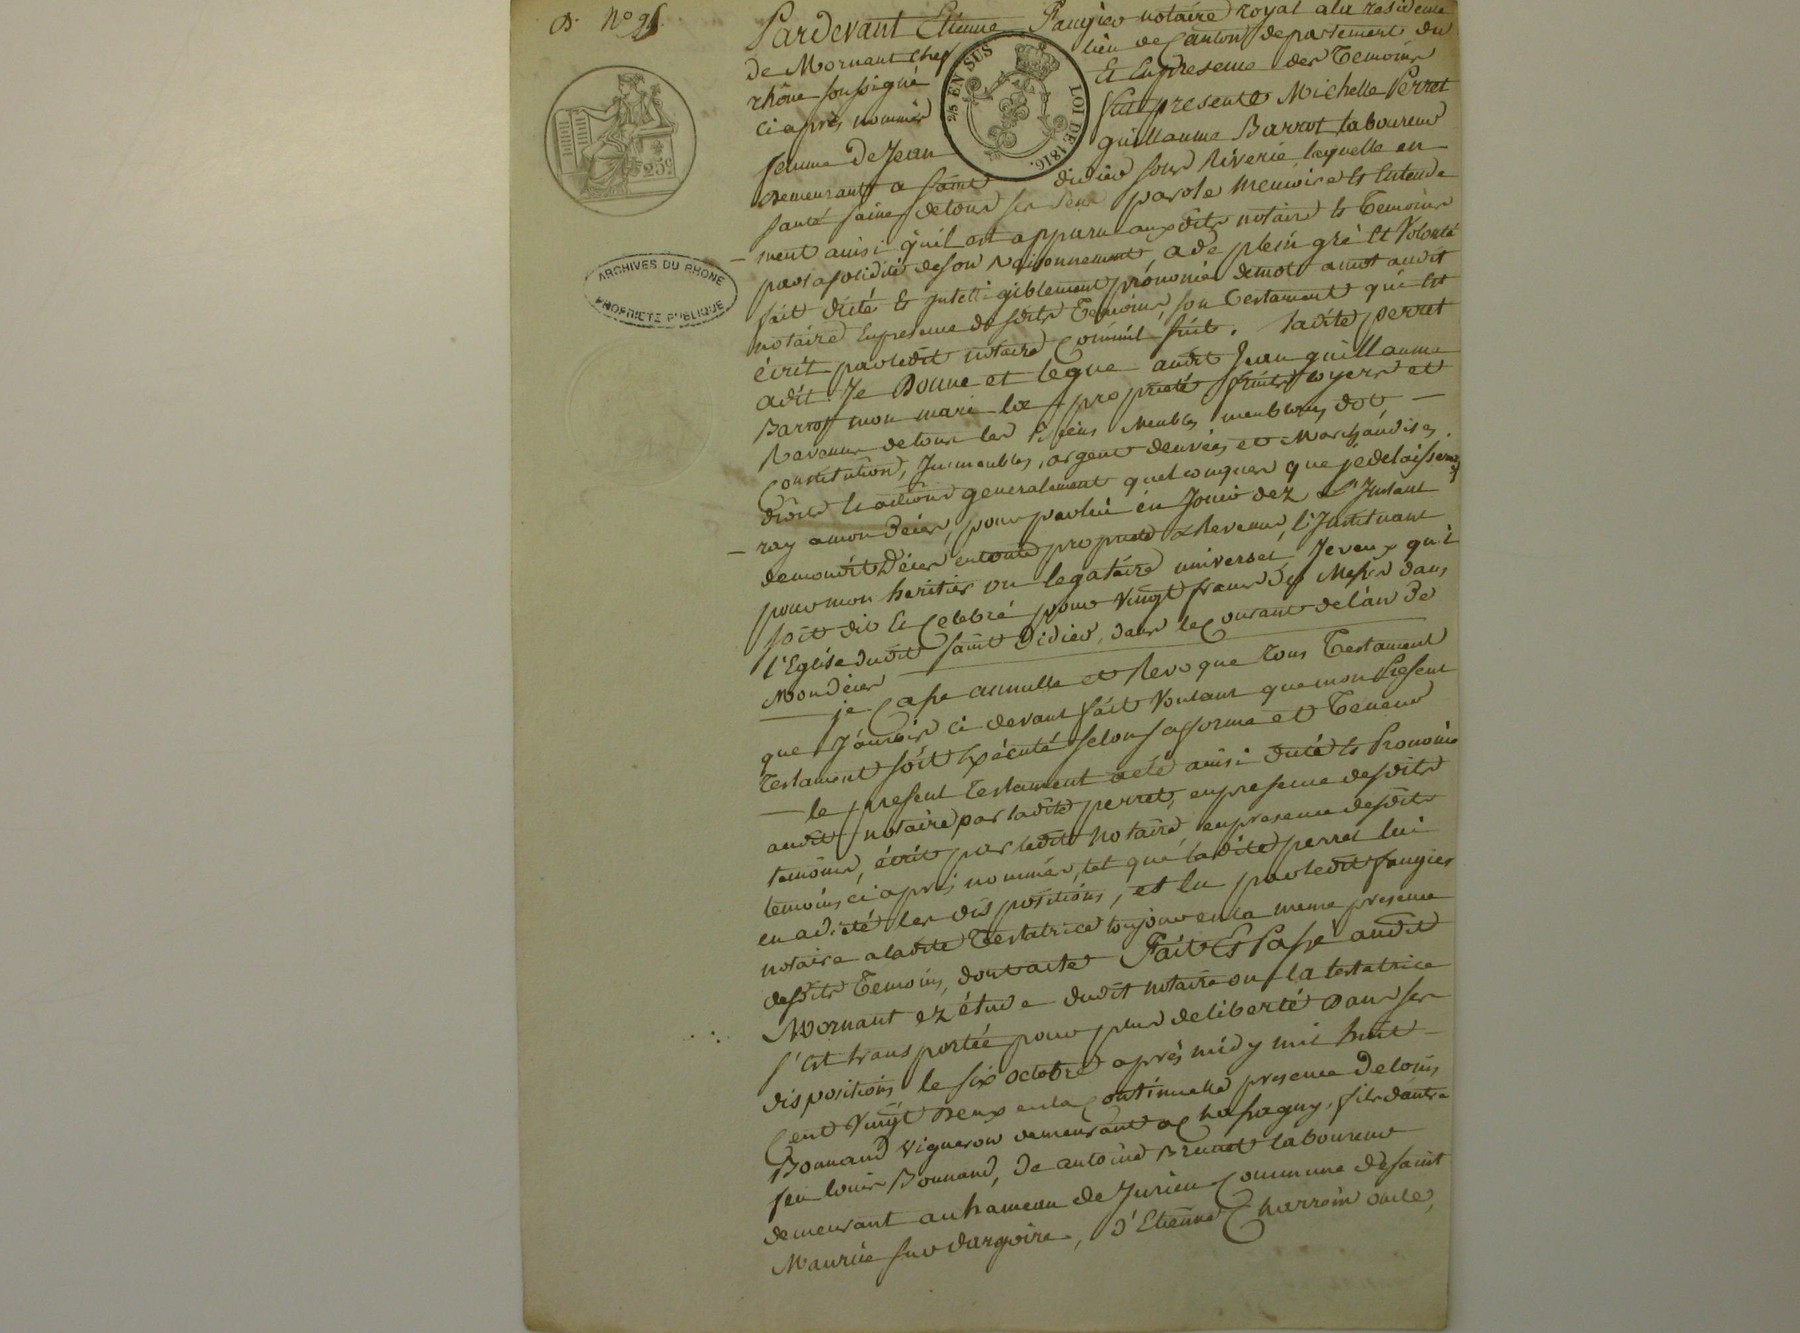 D. No 91.
Pardevant Etienne Faugier notaire royal a la residence
de Mornant chef lieu de Canton departement du
rhône soussigné Et En presence des Temoins
ci après nommés fut presente Michelle Perret
femme De Jean guillaume Barrot laboureur
Demeurant a saint didier sous Riverie, laquelle en
santé saine de tous ses sens parole memoire et Entende
– ment ainsi qu'il est apparu auxdits notaire et Temoins
par la solidité de son raisonnement, a de plein gré et Volonté
fait dicté et Intelligiblement prononcé demot amot audit
notaire En presence desdits Temoins, son Testament qui Est
écrit par ledit notaire Comme suit. ladite perret
a dit. Je Donne et legue audit Jean guillaume
Barrot mon mari la propriété fruits loyers et
Revenus de tous les Biens Meubles meublans, dot –
Constitution, Immeubles, argent denrées et Marchandises,
droits et actions generalement quelconques que je delaisse
– ray amon Décès, pour par lui en Jouir dez L'Instant
demondit Décès en toute propriété & Revenus, l'Instituant
pour mon heritier ou legataire universel, Je veux qu'il
soit dit et Celebré pour vingt francs De Messes dans
l'Eglise dudit saint Didier, dans le Courant de l'an De
Mon Décès
— je Casse annulle et Revoque tous Testament
que J'aurois ci devant fait Voulant que mon Présent
Testament soit Exécuté selon sa forme et Teneur
— le present Testament a été ainsi dicté et Prononcé
audit notaire par ladite perret, en presence desdits
temoins, écrit par ledit Notaire, en presence desdits
temoins ci après nommés, tel que ladite perret lui
en a dicté les dispositions, et lu par ledit faugier
notaire a ladite Testatrice toujours en la meme presence
desdits Temoins, dont acte Fait Et Passé audit
Mornant ez étude dudit notaire ou la testatrice
s'est transportée pour plus de liberté Dans ses
dispositions le six octobre après midy mil huit –
Cent Vingt Deux en la Continuelle presence De louis
Bonnand vigneron demeurant a Chassagny, fils dautre
feu louis Bonnand, de antoine Brunet laboureur
demeurant au hameau de Jurieu Commune de saint
Maurice sur dargoire, d'Etienne Charroin
25 EN SUS
LOI DE 1816.
25c
ARCHIVES DU RHONE
PROPRIETE PUBLIQUE